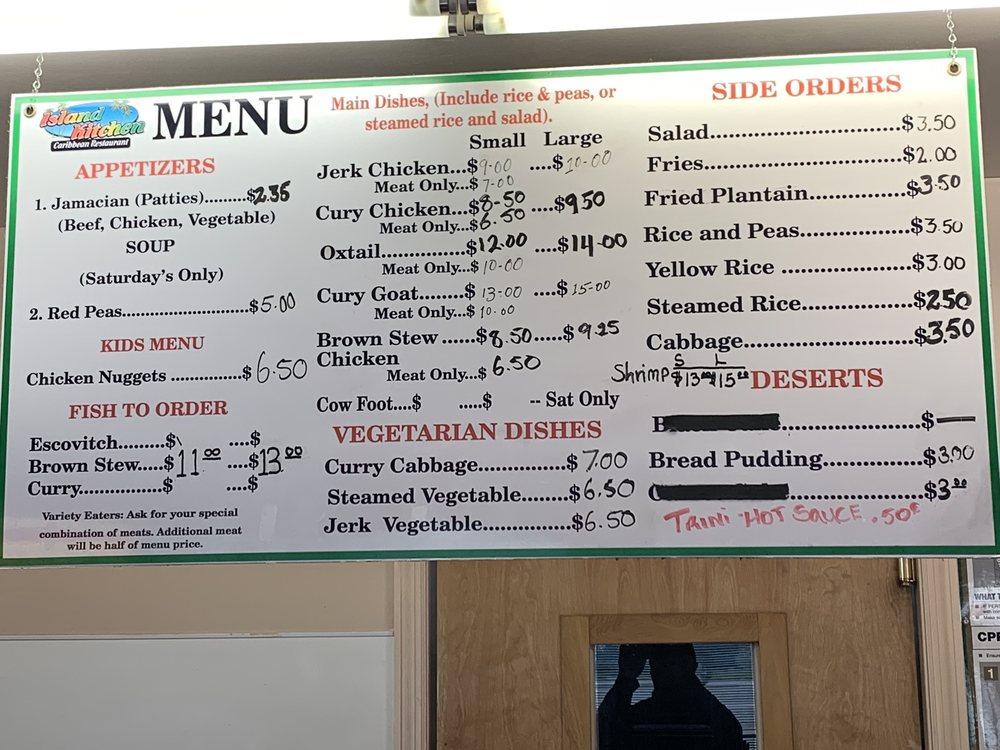 Island Kitchen
Caribbean Restaurant
MENU
APPETIZERS
1. Jamacian (Patties).........$2.35
(Beef, Chicken, Vegetable)
SOUP
(Saturday's Only)
2. Red Peas............................$5.00
KIDS MENU
Chicken Nuggets ...............$6.50
FISH TO ORDER
Escovitch..........$ ....$
Brown Stew.....$11.00 ....$13.00
Curry.................$ ....$
Variety Eaters: Ask for your special
combination of meats. Additional meat
will be half of menu price.
Main Dishes, (Include rice & peas, or
steamed rice and salad).
Small Large
Jerk Chicken...$9-00 ....$10-00
Meat Only...$7-00
Cury Chicken...$8-50 ....$950
Meat Only...$6.50
Oxtail..............$12.00 ....$14-00
Meat Only...$10-00
Cury Goat........$13-00 ....$15-00
Meat Only...$10.00
Brown Stew ......$8.50.....$9.25
Chicken
Meat Only...$6.50
Cow Foot....$ .....$ -- Sat Only
VEGETARIAN DISHES
Curry Cabbage...............$7.00
Steamed Vegetable........$6.50
Jerk Vegetable...............$6.50
SIDE ORDERS
Salad.............................$3.50
Fries..............................$2.00
Fried Plantain...............$3.50
Rice and Peas.................$3.50
Yellow Rice ....................$3.00
Steamed Rice.................$250
Cabbage.........................$3.50
S L
Shrimp $13.00 $15.00
DESERTS
B......................$—
Bread Pudding...............$3.00
C.....................$3.00
TRINI HOT SAUCE .50¢
WHAT T
CPR
1